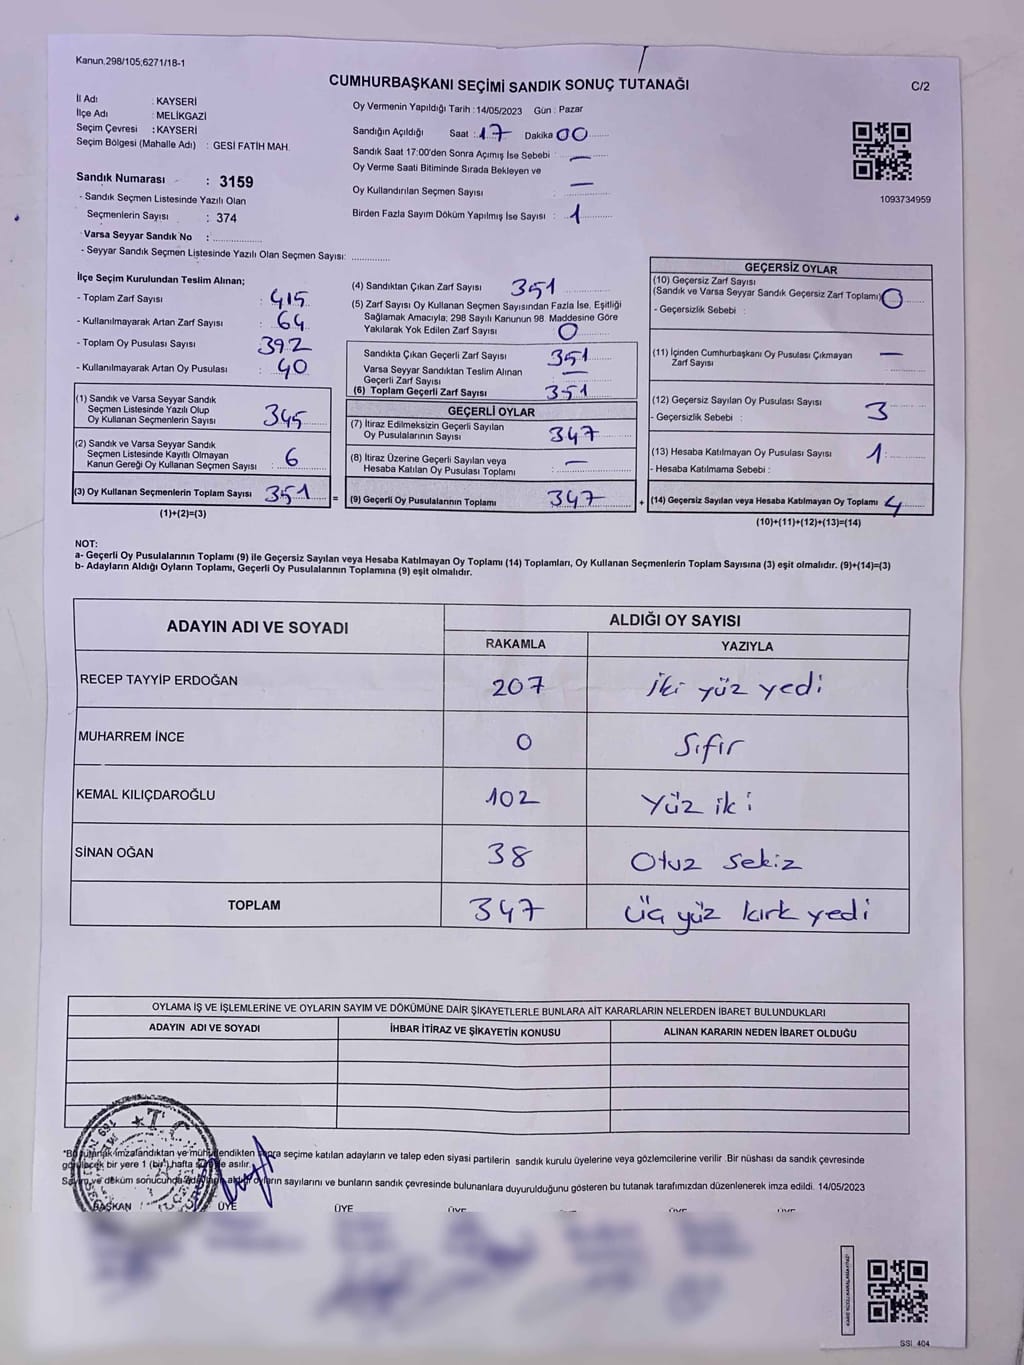 Kanun,298/105;6271/18-1
CUMHURBAŞKANI SEÇİMİ SANDIK SONUÇ TUTANAĞI
C/2
İl Adı : KAYSERİ
İlçe Adı : MELİKGAZİ
Seçim Çevresi : KAYSERİ
Seçim Bölgesi (Mahalle Adı) : GESİ FATİH MAH.
Sandık Numarası : 3159
- Sandık Seçmen Listesinde Yazılı Olan
Seçmenlerin Sayısı : 374
Varsa Seyyar Sandık No :
- Seyyar Sandık Seçmen Listesinde Yazılı Olan Seçmen Sayısı:
Oy Vermenin Yapıldığı Tarih : 14/05/2023 Gün : Pazar
Sandığın Açıldığı Saat : 17 Dakika 00
Sandık Saat 17:00'den Sonra Açımış İse Sebebi : —
Oy Verme Saati Bitiminde Sırada Bekleyen ve
Oy Kullandırılan Seçmen Sayısı : —
Birden Fazla Sayım Döküm Yapılmış İse Sayısı : 1
1093734959
İlçe Seçim Kurulundan Teslim Alınan;
- Toplam Zarf Sayısı : 415
- Kullanılmayarak Artan Zarf Sayısı : 64
- Toplam Oy Pusulası Sayısı : 392
- Kullanılmayarak Artan Oy Pusulası : 40
(1) Sandık ve Varsa Seyyar Sandık
Seçmen Listesinde Yazılı Olup
Oy Kullanan Seçmenlerin Sayısı : 345
(2) Sandık ve Varsa Seyyar Sandık
Seçmen Listesinde Kayıtlı Olmayan
Kanun Gereği Oy Kullanan Seçmen Sayısı : 6
(3) Oy Kullanan Seçmenlerin Toplam Sayısı 351 =
(1)+(2)=(3)
(4) Sandıktan Çıkan Zarf Sayısı 351
(5) Zarf Sayısı Oy Kullanan Seçmen Sayısından Fazla İse, Eşitliği
Sağlamak Amacıyla; 298 Sayılı Kanunun 98. Maddesine Göre
Yakılarak Yok Edilen Zarf Sayısı 0
Sandıkta Çıkan Geçerli Zarf Sayısı 351
Varsa Seyyar Sandıktan Teslim Alınan
Geçerli Zarf Sayısı —
(6) Toplam Geçerli Zarf Sayısı 351
GEÇERLİ OYLAR
(7) İtiraz Edilmeksizin Geçerli Sayılan
Oy Pusulalarının Sayısı 347
(8) İtiraz Üzerine Geçerli Sayılan veya
Hesaba Katılan Oy Pusulası Toplamı —
(9) Geçerli Oy Pusulalarının Toplamı 347 +
GEÇERSİZ OYLAR
(10) Geçersiz Zarf Sayısı
(Sandık ve Varsa Seyyar Sandık Geçersiz Zarf Toplamı) 0
- Geçersizlik Sebebi :
(11) İçinden Cumhurbaşkanı Oy Pusulası Çıkmayan
Zarf Sayısı —
(12) Geçersiz Sayılan Oy Pusulası Sayısı 3
- Geçersizlik Sebebi :
(13) Hesaba Katılmayan Oy Pusulası Sayısı 1
- Hesaba Katılmama Sebebi :
(14) Geçersiz Sayılan veya Hesaba Katılmayan Oy Toplamı 4
(10)+(11)+(12)+(13)=(14)
NOT:
a- Geçerli Oy Pusulalarının Toplamı (9) ile Geçersiz Sayılan veya Hesaba Katılmayan Oy Toplamı (14) Toplamları, Oy Kullanan Seçmenlerin Toplam Sayısına (3) eşit olmalıdır. (9)+(14)=(3)
b- Adayların Aldığı Oyların Toplamı, Geçerli Oy Pusulalarının Toplamına (9) eşit olmalıdır.
ADAYIN ADI VE SOYADI
ALDIĞI OY SAYISI
RAKAMLA YAZIYLA
RECEP TAYYİP ERDOĞAN 207 iki yüz yedi
MUHARREM İNCE 0 Sıfır
KEMAL KILIÇDAROĞLU 102 Yüz iki
SİNAN OĞAN 38 Otuz sekiz
TOPLAM 347 üç yüz kırk yedi
OYLAMA İŞ VE İŞLEMLERİNE VE OYLARIN SAYIM VE DÖKÜMÜNE DAİR ŞİKAYETLERLE BUNLARA AİT KARARLARIN NELERDEN İBARET BULUNDUKLARI
ADAYIN ADI VE SOYADI İHBAR İTİRAZ VE ŞİKAYETİN KONUSU ALINAN KARARIN NEDEN İBARET OLDUĞU
*Bu tutanak imzalandıktan ve mühürlendikten sonra seçime katılan adayların ve talep eden siyasi partilerin sandık kurulu üyelerine veya gözlemcilerine verilir. Bir nüshası da sandık çevresinde
görülecek bir yere 1 (bir) hafta süreyle asılır.
Sayım ve döküm sonucunda adayların aldığı oyların sayılarını ve bunların sandık çevresinde bulunanlara duyurulduğunu gösteren bu tutanak tarafımızdan düzenlenerek imza edildi. 14/05/2023
BAŞKAN ÜYE ÜYE ÜYE ÜYE ÜYE
SSI 404